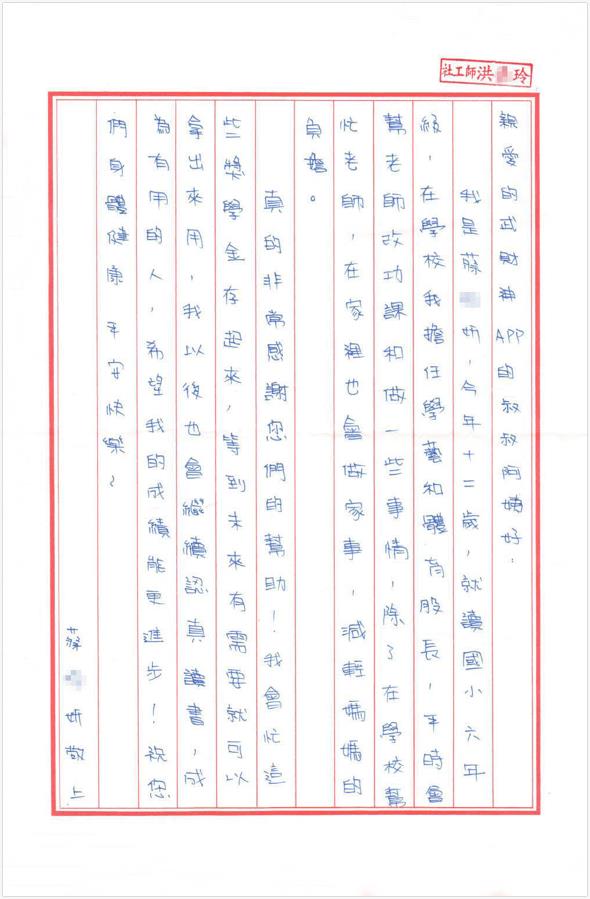 社工師洪玲
親愛的武財神APP的叔叔阿姨好:
我是妍,今年十二歲,就讀國小六年
級,在學校我擔任學藝和體育股長,平時會
幫老師改功課和做一些事情,除了在學校幫
忙老師,在家裡也會做家事,減輕媽媽的
負擔。
真的非常感謝您們的幫助!我會忙這
些獎學金存起來,等到未來有需要就可以
拿出來用,我以後也會繼續認真讀書,成
為有用的人,希望我的成績能更進步!祝您
們身體健康 平安快樂~
妍敬上